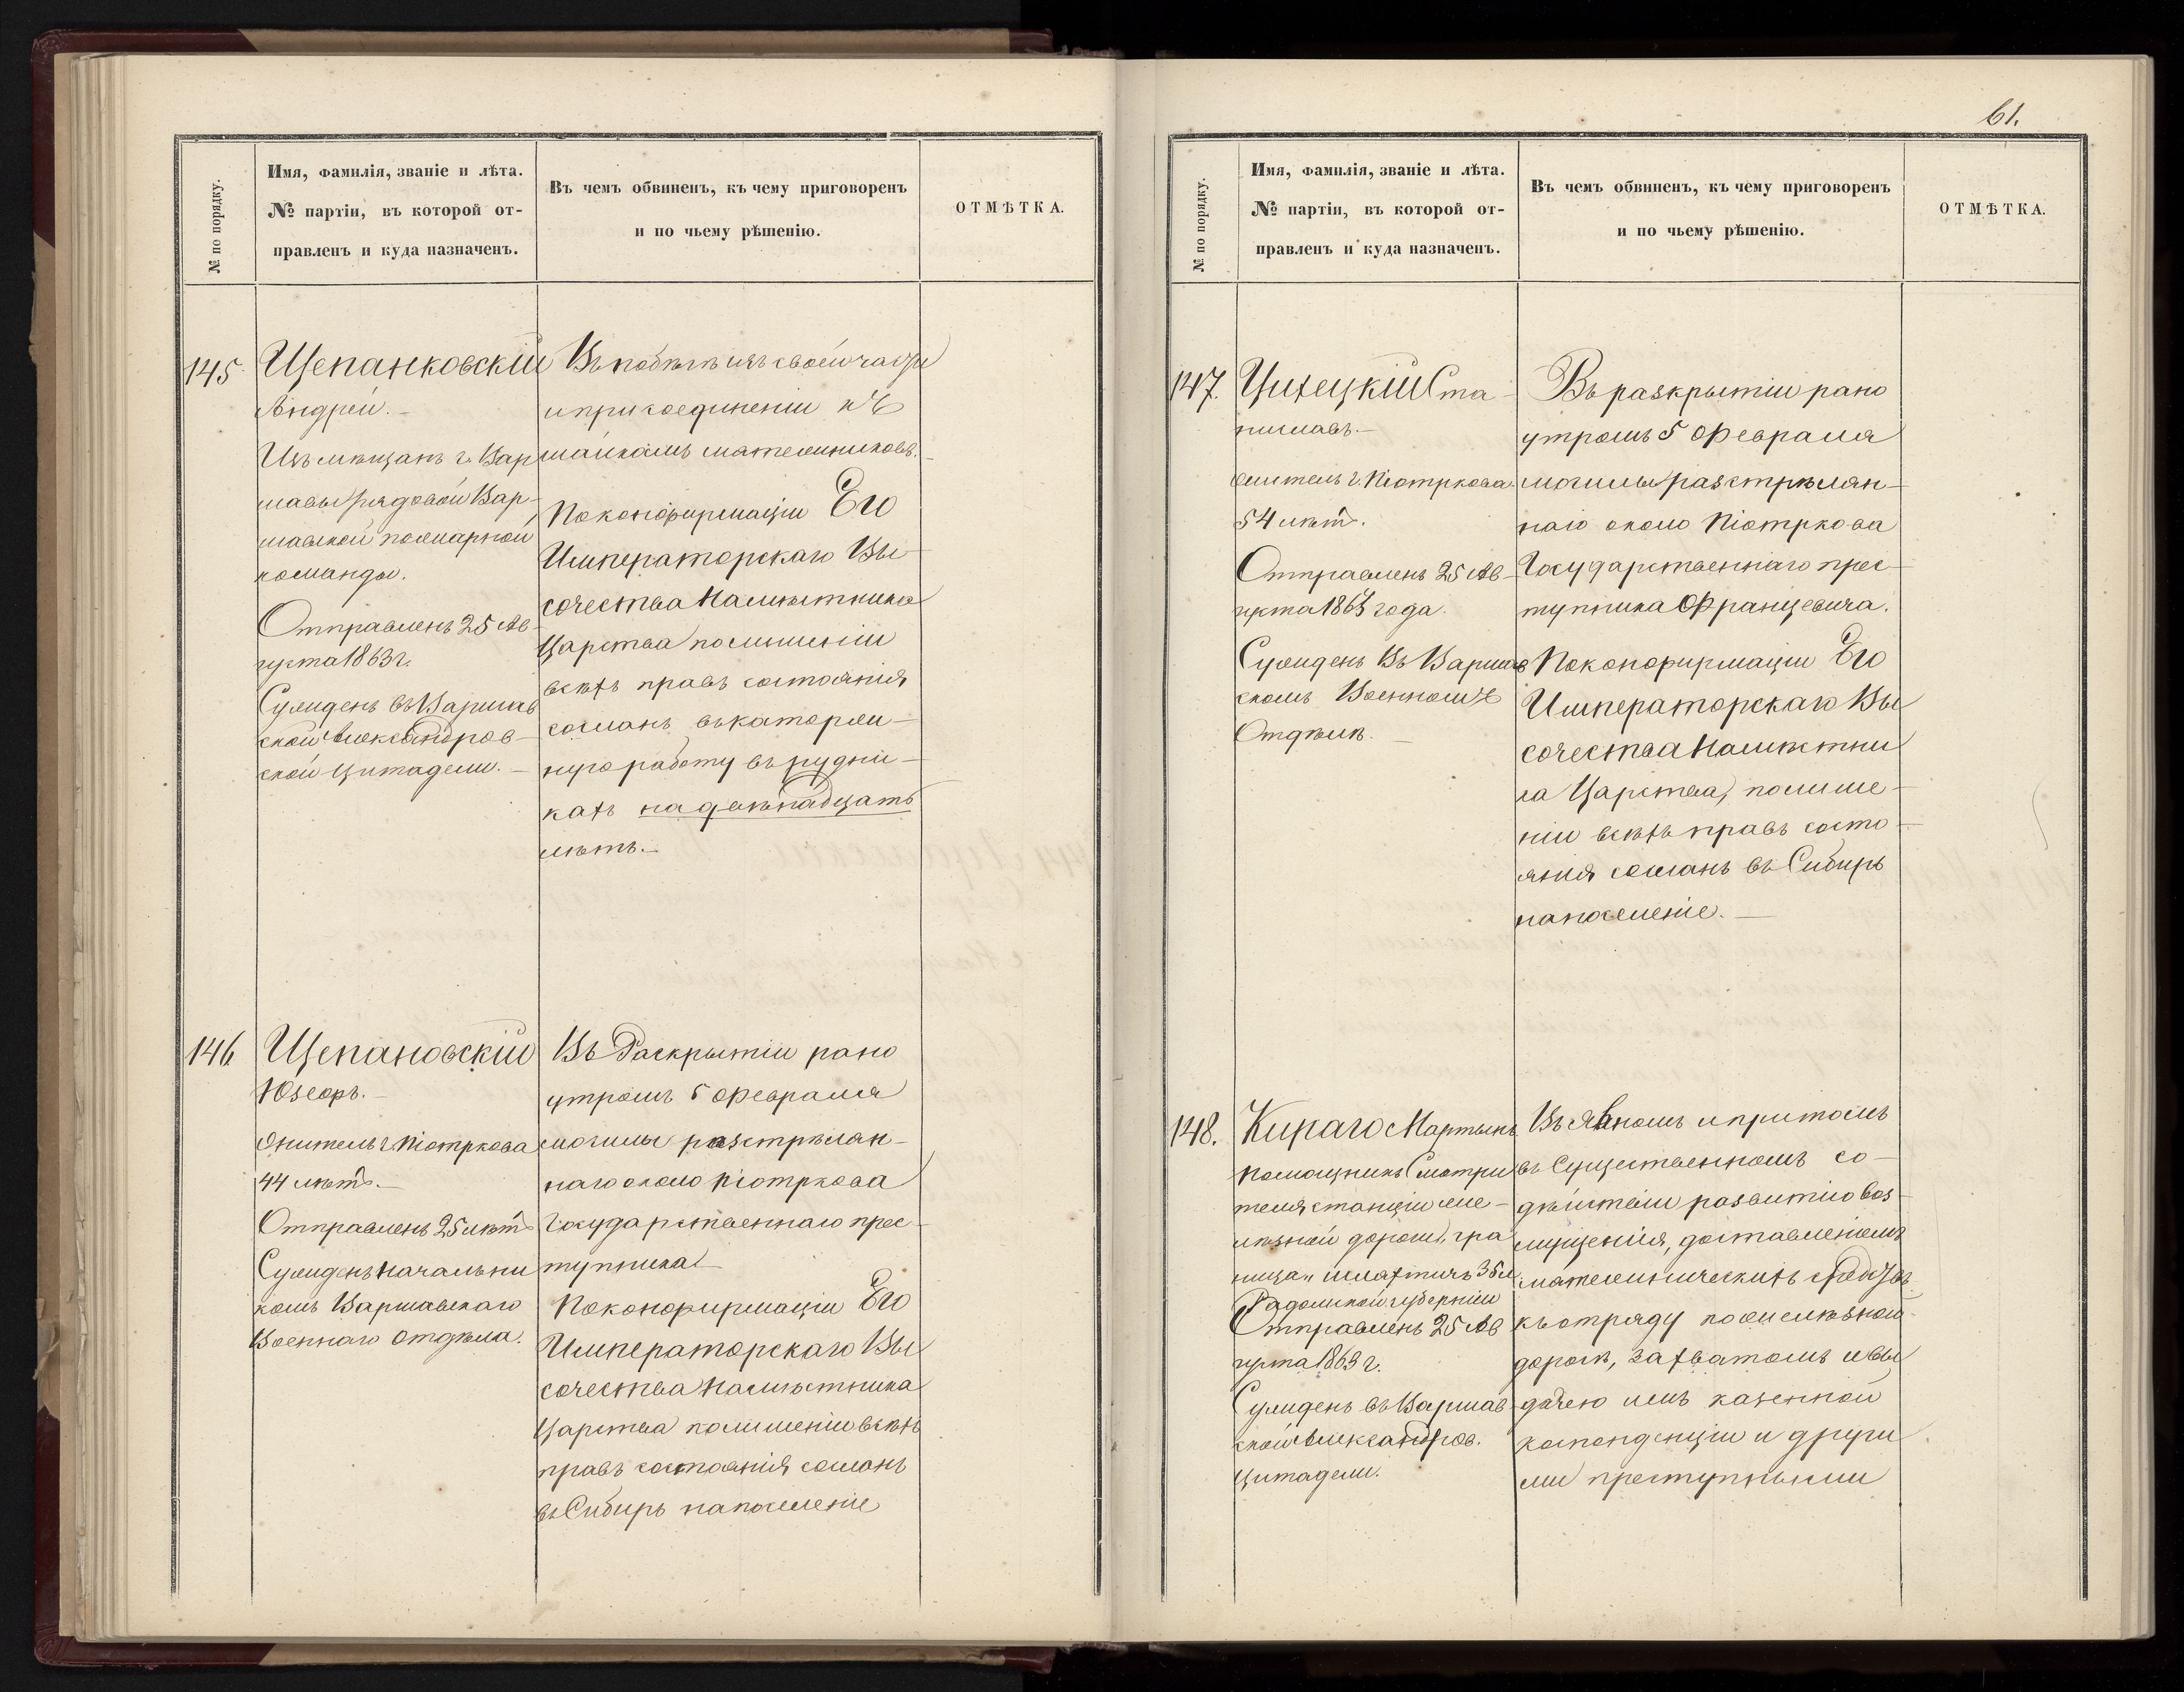 № по порядку.
Имя, фамилія, званіе и лѣта.
№ партіи, въ которой от-
правленъ и куда назначенъ.
Въ чемъ обвиненъ, къ чему приговоренъ
и по чьему рѣшенію.
ОТМѢТКА.
145
Щепанковскій
Андрей.-
Изъ мѣщанъ г. Вар
шавы рядовой Вар-
шавской пожарной
команды.
Отправленъ 25 Ав-
густа 1863 г.
Сужденъ въ Варшав
ской Александров-
ской Цитадели.-
Въ побѣгѣ изъ своей части
и присоединеніи къ
шайкамъ мятежниковъ.-
По конфирмаціи Его
Императорскаго Вы-
сочества Намѣстника
Царства по лишеніи
всѣхъ правъ состоянія
сосланъ въ каторжн-
ую работу въ рудни-
кахъ на двѣнадцать
лѣтъ.-
146
Щепановскій
Юзефъ.-
Житель г. Піотркова
44 лѣтъ.-
Отправленъ 25 лѣтъ
Сужденъ Начальни
комъ Варшавскаго
Военнаго Отдѣла.
Въ Раскрытіи рано
утромъ 5 Февраля
могилы разстрѣлян-
наго около Піотркова
Государственнаго прес-
тупника-
По конфирмаціи Его
Императорскаго Вы
сочества Намѣстника
Царства по лишеніи всѣхъ
правъ состоянія сосланъ
въ Сибирь на поселеніе
61.
№ по порядку.
Имя, фамилія, званіе и лѣта.
№ партіи, въ которой от-
правленъ и куда назначенъ.
Въ чемъ обвиненъ, къ чему приговоренъ
и по чьему рѣшенію.
ОТМѢТКА.
147.
Цихецкій Ста-
ниславъ.-
житель г. Піотркова.
54 лѣтъ.
Отправленъ 25 Ав-
густа 1863 года.
Сужденъ Въ Варшав
скомъ Военномъ
Отдѣлѣ.-
Въ раскрытіи рано
утромъ 5 Февраля
могилы разстрѣлян-
наго около Піотркова
Государственнаго прес-
тупника Францевича.
По конфирмаціи Его
Императорскаго Вы
сочества Намѣстни
ка Царства, по лише-
ніи всѣхъ правъ состо-
янія сосланъ въ Сибирь
на поселеніе.-
148.
Кираго Мартынъ
Помощникъ Смотри
теля станціи же-
лѣзной дороги, гра
ница" шляхтичъ 35 л.
Радомской губерніи
Отправленъ 25 Ав
густа 1863 г.
Сужденъ въ Варшав
ской Александров.
Цитадели.
Въ явномъ и притомъ
въ Существенномъ со-
дѣйствіи развитію воз-
мущенія, доставленіемъ
мятежническихъ
къ отряду по желѣзной
дорогѣ, захватомъ и вы
дачею имъ казенной
и други
ми преступными